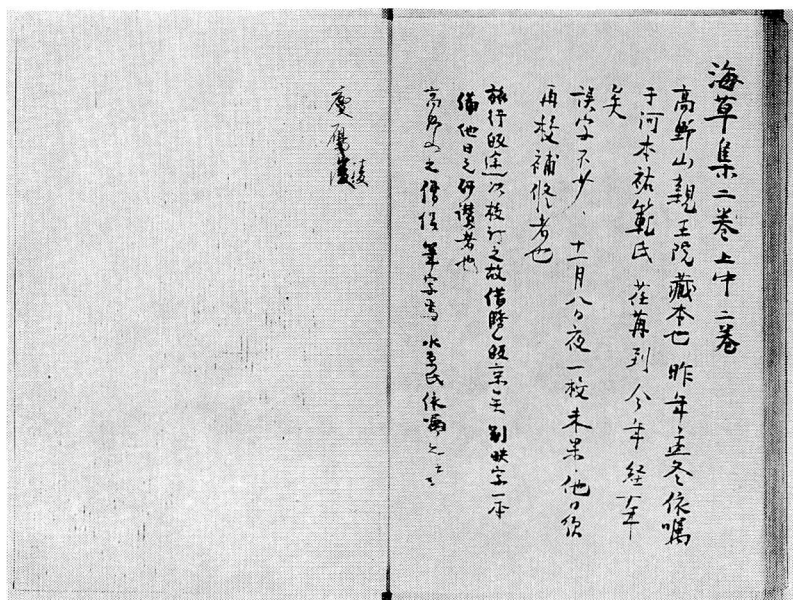 海草集二巻上中二巻
高野山親王院藏本也昨年孟冬依嘱
于河本祐範氏荏苒到今年経一年
矣
誤字不少、十一月八日夜一校未果、他日須
再校補修者也
旅行帰途以校訂之故借覽帰京矣別映字一本
備他日之研讃者也
高野山之僧侶筆字為水原氏依嘱之
慶應 陵